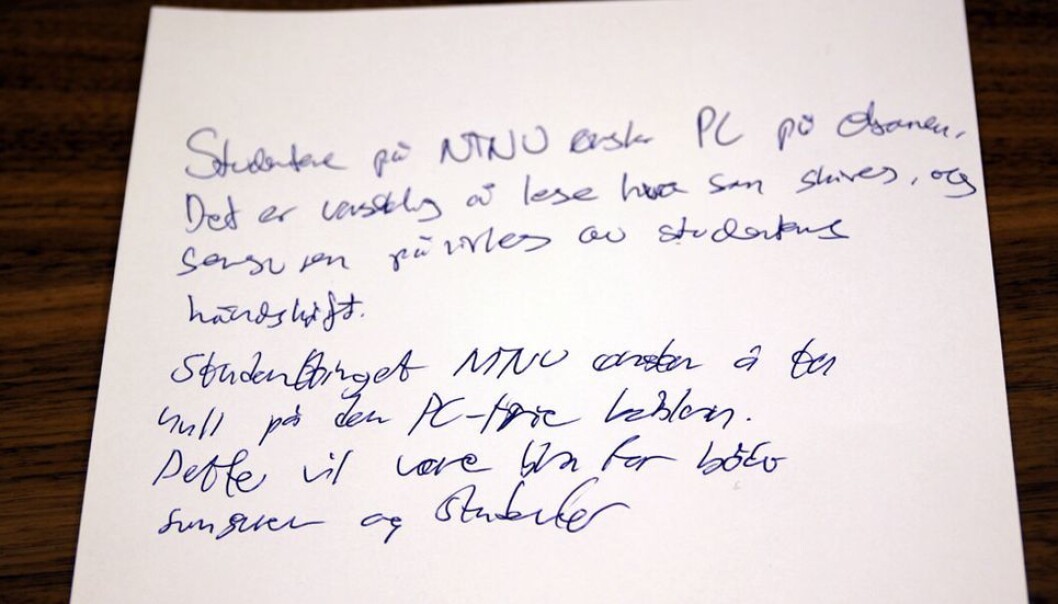 Studentene på NTNU ønsker PC på eksamen.
Det er vanskelig å lese hva som skives, og
sensuren påvirkes av studentens
håndskrift.
Studenttinget NTNU ønsker å ta
hull på den PC-frie boblen.
Dette vil være bra for både
sensuren og studenter